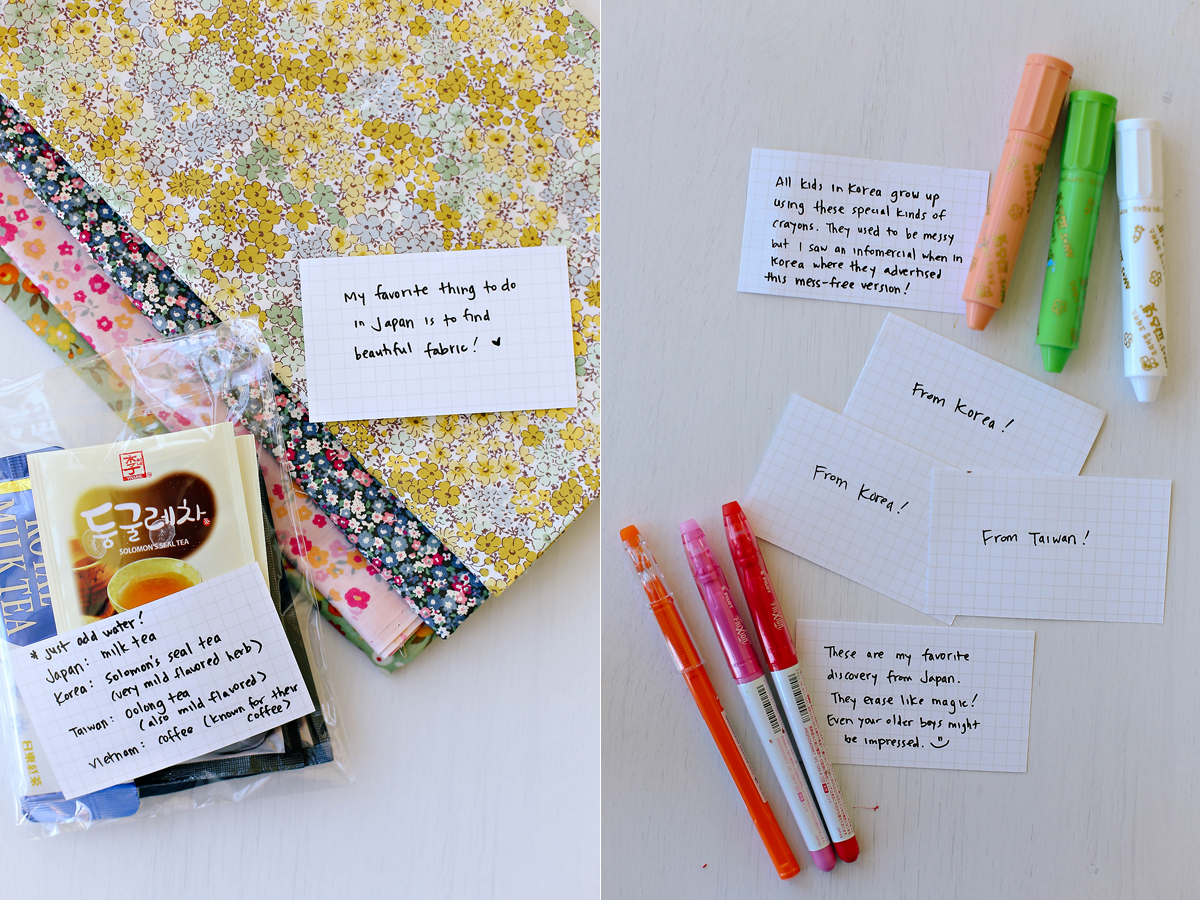 My favorite thing to do
in Japan is to find
beautiful fabric! ♥
李
둥굴레차
SOLOMON'S SEAL TEA
ROYAL
MILK TEA
* just add water!
Japan: milk tea
Korea: Solomon's seal tea
(very mild flavored herb)
Taiwan: oolong tea
(also mild flavored)
Vietnam: coffee (known for their
coffee)
日東紅茶
All kids in Korea grow up
using these special kinds of
crayons. They used to be messy
but I saw an infomercial when in
Korea where they advertised
this mess-free version!
From Korea!
From Korea!
From Taiwan!
These are my favorite
discovery from Japan.
They erase like magic!
Even your older boys might
be impressed.
PILOT